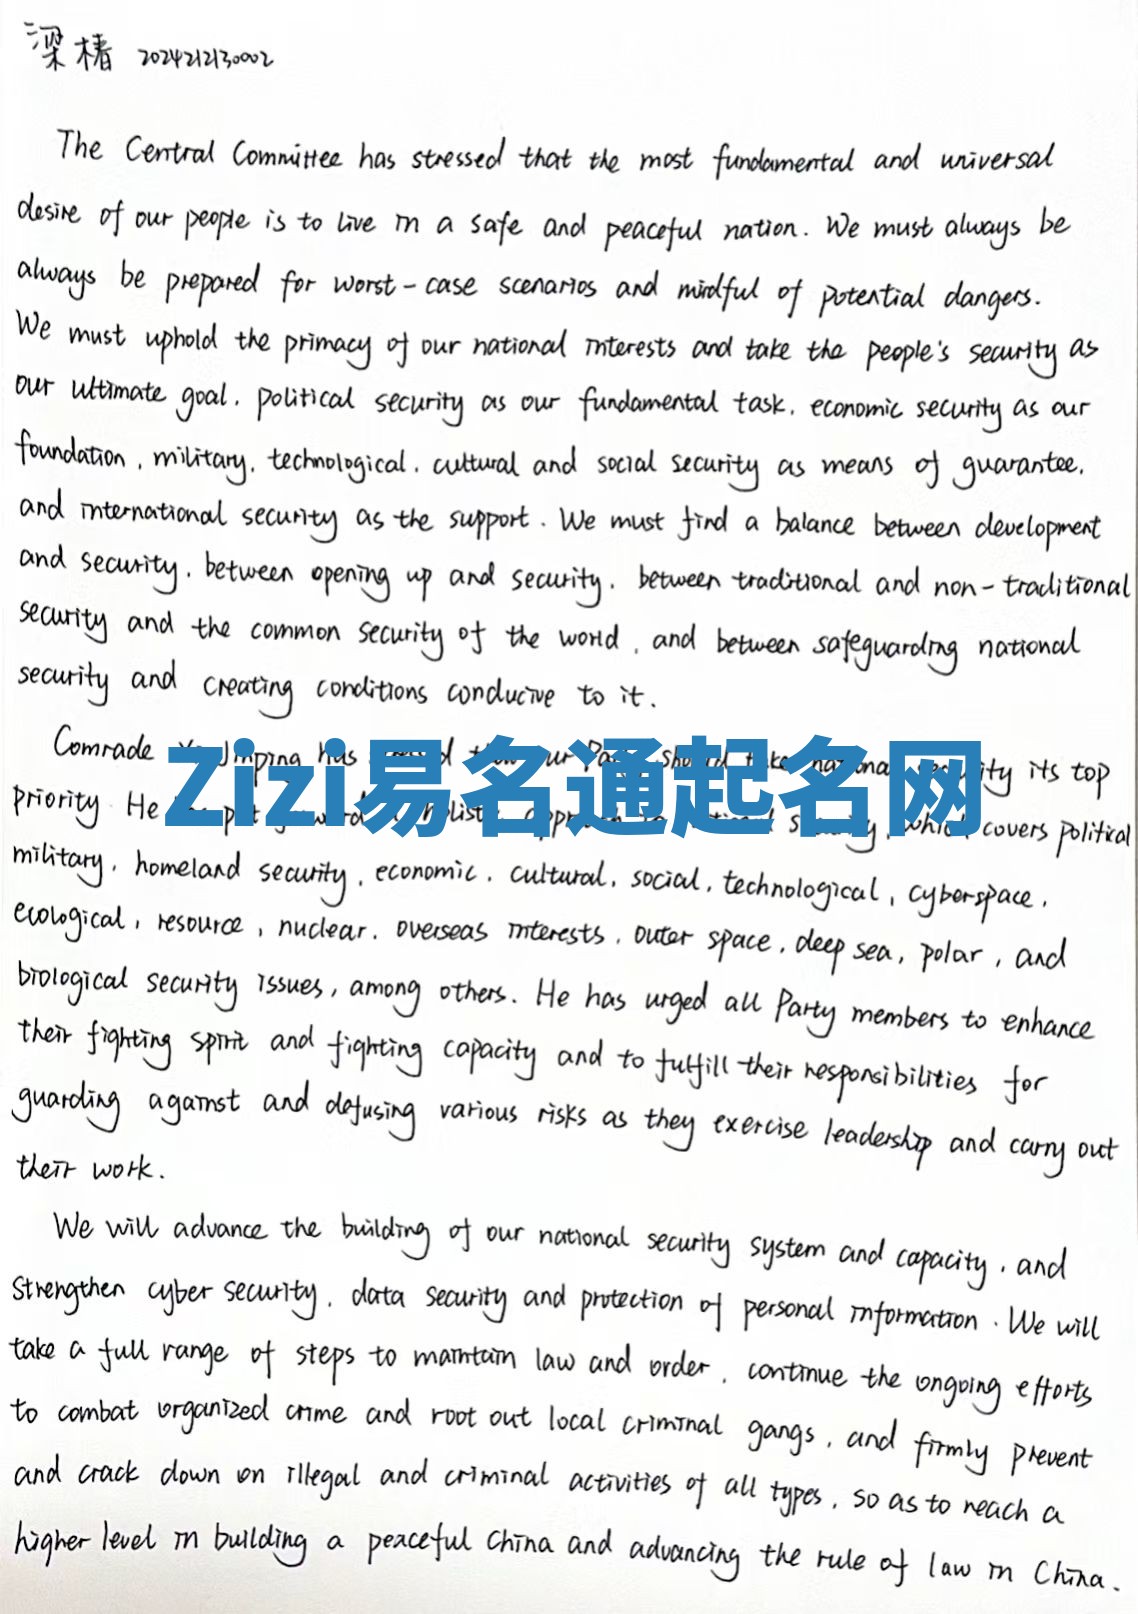 梁椿 2024212130002
The Central Committee has stressed that the most fundamental and universal
desire of our people is to live in a safe and peaceful nation. We must always be
always be prepared for worst-case scenarios and mindful of potential dangers.
We must uphold the primacy of our national interests and take the people's security as
our ultimate goal, political security as our fundamental task, economic security as our
foundation, military, technological, cultural and social security as means of guarantee,
and international security as the support. We must find a balance between development
and security, between opening up and security, between traditional and non-traditional
security and the common security of the world, and between safeguarding national
security and creating conditions conducive to it.
Comrade Jinping has our should national its top
priority. He which covers political
Zizi易名通起名网
military, homeland security, economic, cultural, social, technological, cyberspace,
ecological, resource, nuclear, overseas interests, outer space, deep sea, polar, and
biological security issues, among others. He has urged all Party members to enhance
their fighting spirit and fighting capacity and to fulfill their responsibilities for
guarding against and defusing various risks as they exercise leadership and carry out
their work.
We will advance the building of our national security system and capacity, and
strengthen cyber security, data security and protection of personal information. We will
take a full range of steps to maintain law and order, continue the ongoing efforts
to combat organized crime and root out local criminal gangs, and firmly prevent
and crack down on illegal and criminal activities of all types, so as to reach a
higher level in building a peaceful China and advancing the rule of law in China.